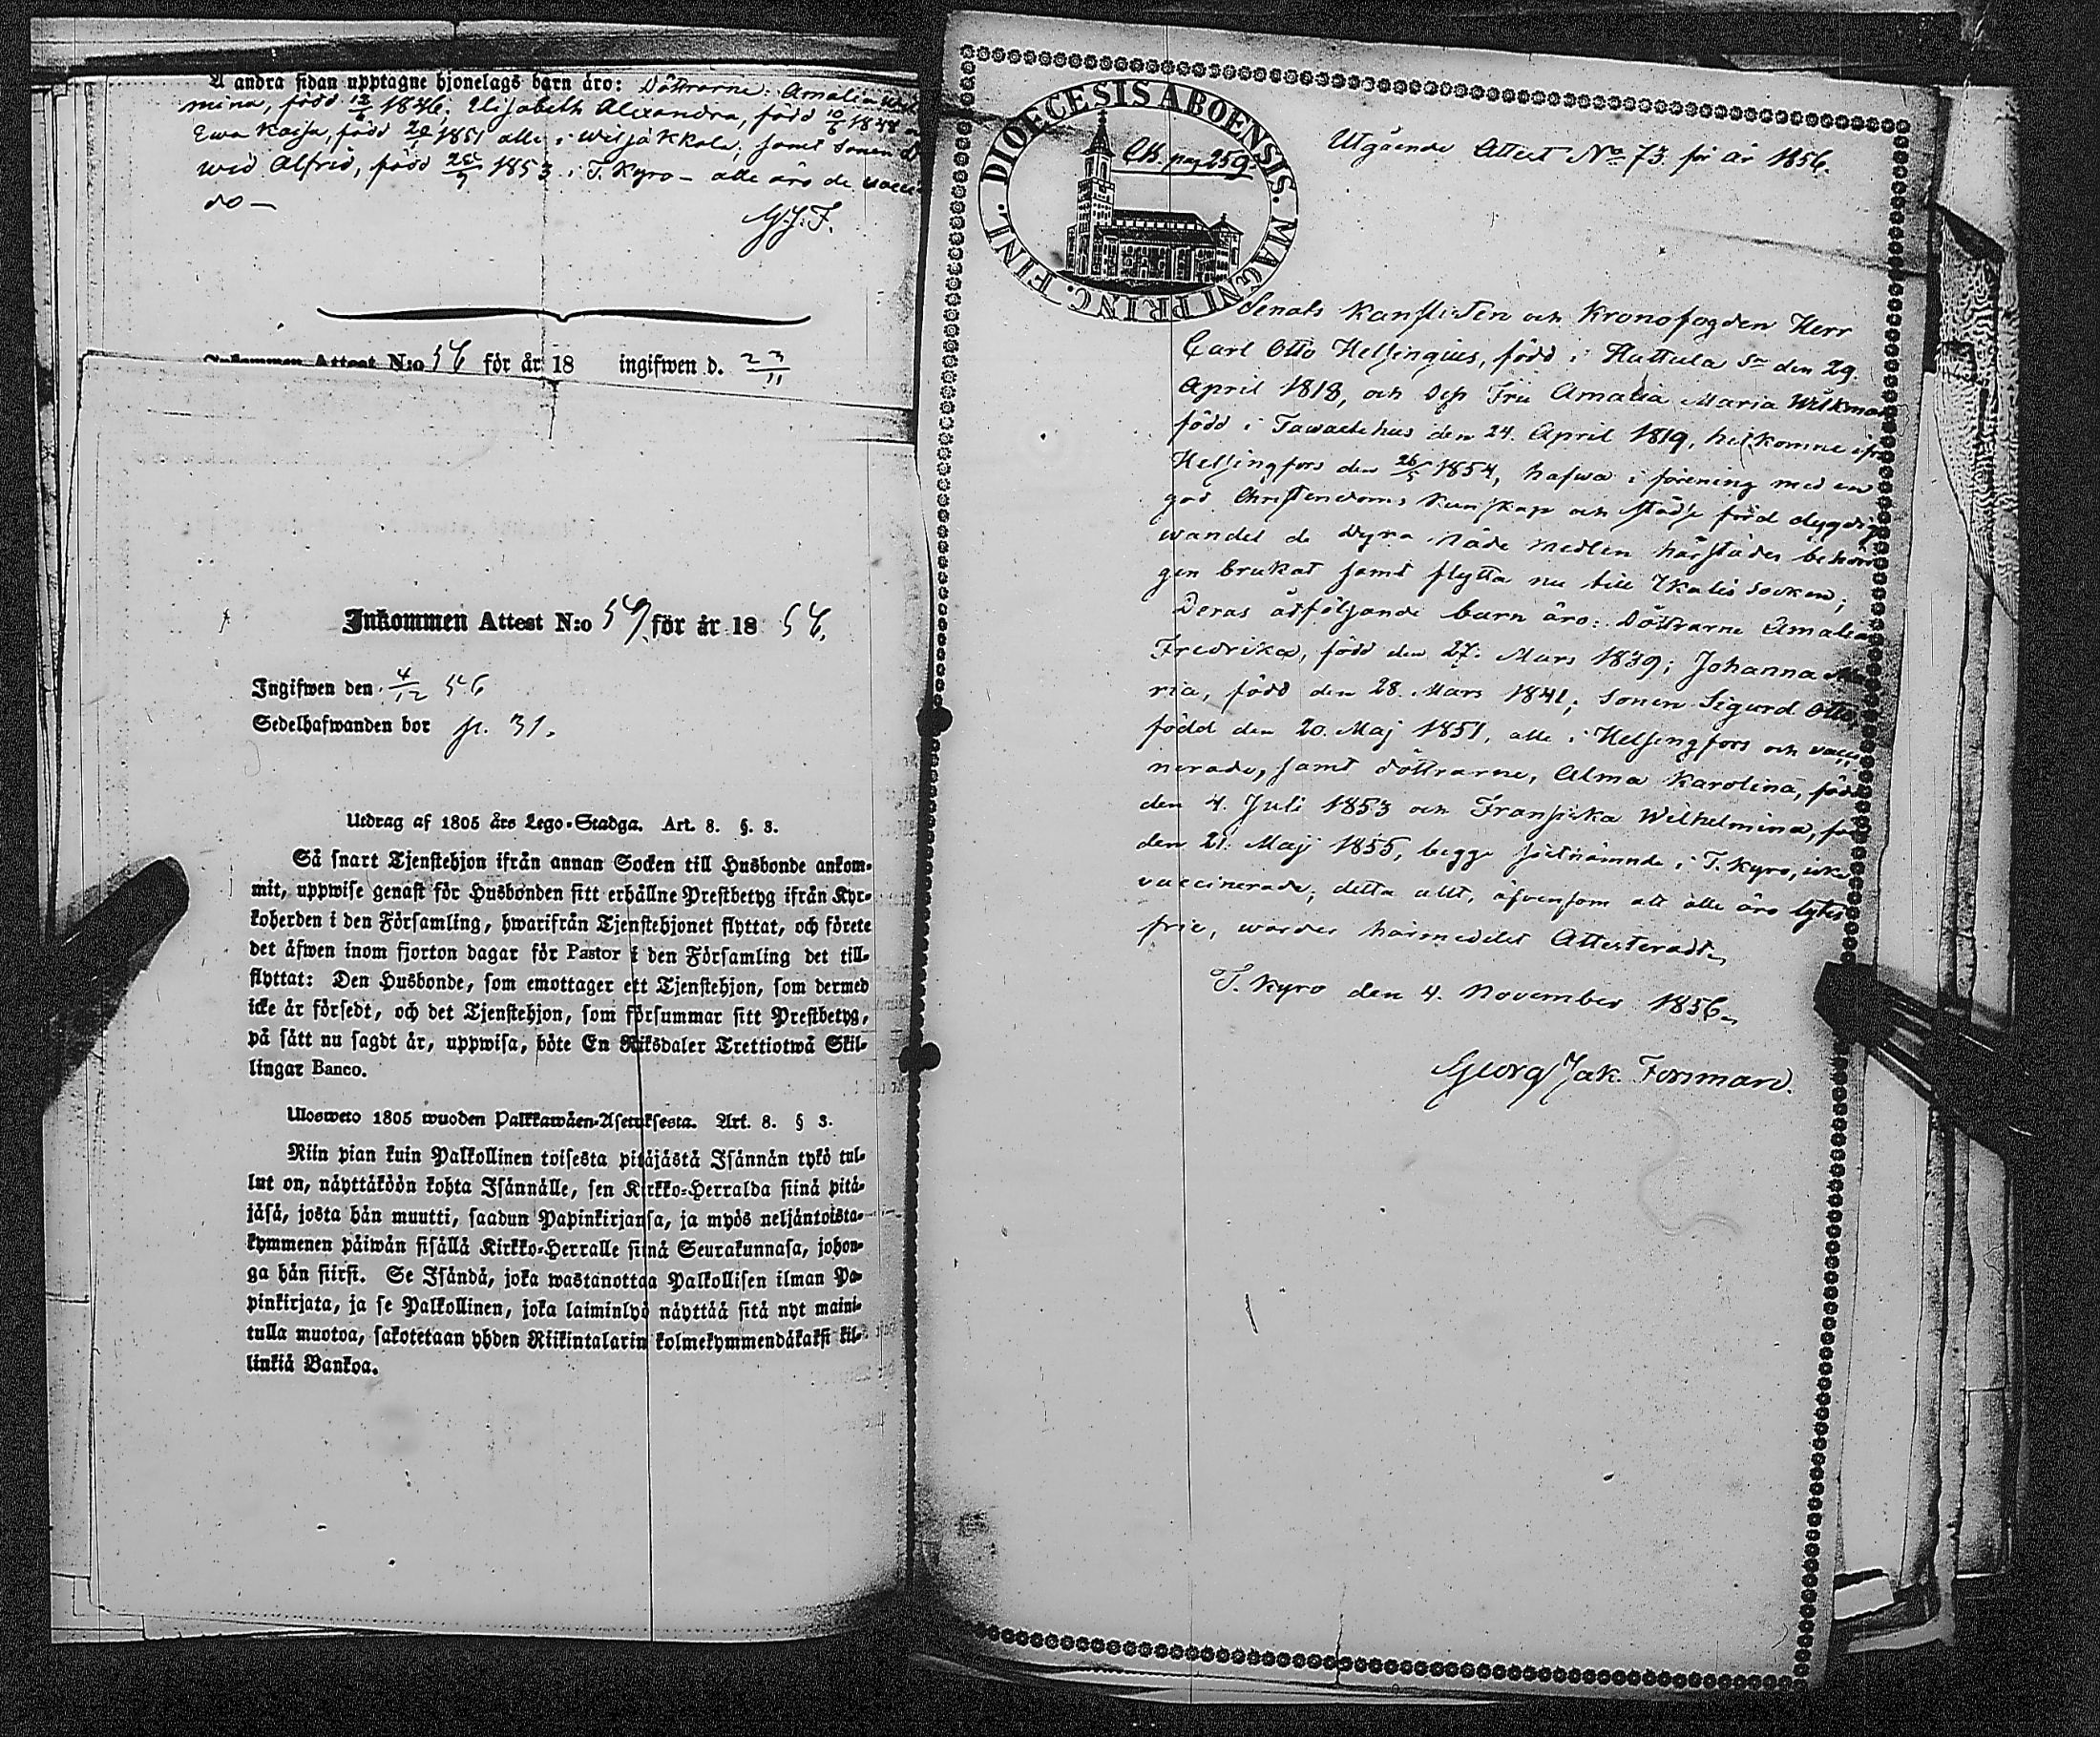 Å andra sidan upptagne hjonelags barn äro: Döttrarne: Amalia Wil
mina, född 12/6 1846; Elisabeth Alexandra, född 10/6 1848
Ewa Kaisa, född 1851 alla i Wiljakkala, samt Sonen
wid Alfrid, född 1853 i T. Kyro – alla äro de vacci
do –
G.J.F.
Inkommen Attest N:o 56 för år 18 ingifwen d. 23/11
Inkommen Attest N:o 59 för år 1856.
Ingifwen den 4/12 56
Sedelhafwanden bor p. 31.
Utdrag af 1805 års Lego-Stadga. Art. 8. §. 3.
Så snart Tjenstehjon ifrån annan Socken till Husbonde ankom-
mit, uppwise genast för Husbonden sitt erhållne Prestbetyg ifrån Kyr-
koherden i den Församling, hwarifrån Tjenstehjonet flyttat, och förete
det äfwen inom fjorton dagar för Pastor i den Församling det till-
flyttat: Den Husbonde, som emottager ett Tjenstehjon, som dermed
icke är försedt, och det Tjenstehjon, som försummar sitt Prestbetyg,
på sätt nu sagdt är, uppwisa, böte En Riksdaler Trettiotwå Skil-
lingar Banco.
Ulosweto 1805 wuoden Palkkawäen-Asetuksesta. Art. 8. § 3.
Niin pian kuin Palkollinen toisesta pitäjästä Isännän tykö tul-
lut on, näyttäköön kohta Isännälle, sen Kirkko-Herralda siinä pitä-
jäsä, josta hän muutti, saadun Papinkirjansa, ja myös neljäntoista-
kymmenen päiwän sisällä Kirkko-Herralle siinä Seurakunnasa, johon-
ga hän siirsi. Se Isändä, joka wastanottaa Palkollisen ilman Pa-
pinkirjata, ja se Palkollinen, joka laiminlyö näyttää sitä nyt maini-
tulla muotoa, sakotetaan yhden Riikintalarin kolmekymmendäkaksi kil-
linkiä Bankoa.
DIOECESIS ABOENSIS. MAGNI PRINC. FINL.
CB. pag 259.
Utgående Attest No 73 för år 1856.
Senats Kanslisten och Kronofogden Herr
Carl Otto Helsingius, född i Hattula Sn den 29.
April 1818, och Dess Fru Amalia Maria Wilkman
född i Tawastehus den 24. April 1819, hitkomne ifrån
Helsingfors den 26/5 1854, hafwa i förening med en
god Christendoms Kunskap och städse förd dygdig
wandel de Dyra Nåde Medlen härstädes behöri
gen brukat samt flytta nu till Ikalis Socken;
Deras åtföljande barn äro: Döttrarne Amalia
Fredrika, född den 27. Mars 1839; Johanna Ma
ria, född den 28. Mars 1841; Sonen Sigurd Otto,
född den 20. Maj 1851, alla i Helsingfors och vacci
nerade, samt döttrarne, Alma Karolina, född
den 4. Juli 1853 och Fransiska Wilhelmina, född
den 21. Maj 1855, begge sistnämnde i T. Kyro, icke
vaccinerade; detta allt, äfvensom att alla äro lytes
frie, warder härmedelst Attesteradt.
T. Kyro den 4. November 1856.
Georg Jak. Forsmard.